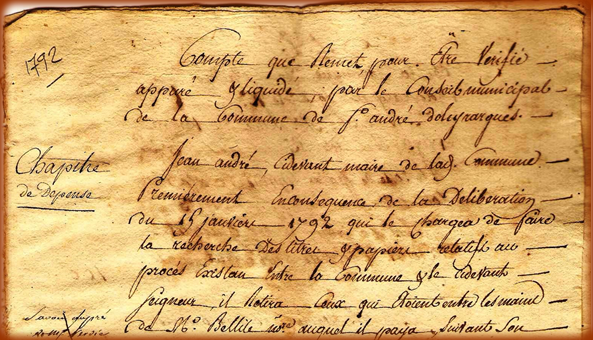 1792
Compte que Remet, pour Être Vérifié
appuré & liquidé, par le Conseil municipal
de la Commune de St. andré d'oleyrargues.
Chapitre
de Depense
Jean andré, cidevant maire de lad. Commune
Premierement Enconsequence de la Deliberation
du 15 janvier 1792 qui le Chargea de faire
la recherche des titres & papiers relatifs au
procés Existan Entre la Commune & le cidevant
Seigneur il Retira Ceux qui Etoient entre les mains
de Me. Bellile nore. auquel il paya, Suivant Son